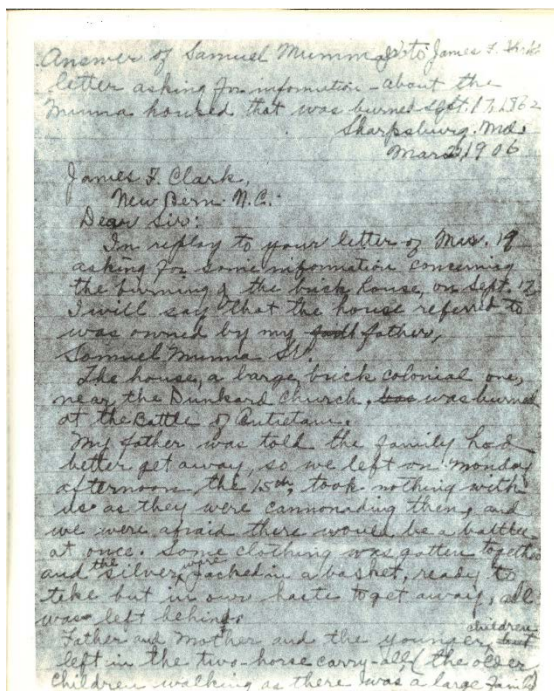 Answer of Samuel Mumma Jr to James F.
letter asking for information - about the
Mumma housed that was burned Sept. 17, 1862
Sharpsburg. Md.
Mar 1906
James F. Clark,
New Bern N.C.
Dear Sir:
In replay to your letter of Mar. 19
asking for some information concerning
the burning of the brick house, on Sept. 17
I will say that the house referred to
was owned by my father,
Samuel Mumma Sr.
The house, a large brick colonial one,
near the Dunkard Church, was burned
at the Battle of Antietam.
My father was told the family had
better get away, so we left on Monday
afternoon the 15th, took nothing with
us as they were cannonading then, and
we were afraid there would be a battle
at once. Some clothing was gotten together
and the silver were packed in a basket, ready to
take but in our haste to get away, all
was left behind.
Father and Mother and the younger children
left in the two-horse carry-all (the older
children walking as there was a large family